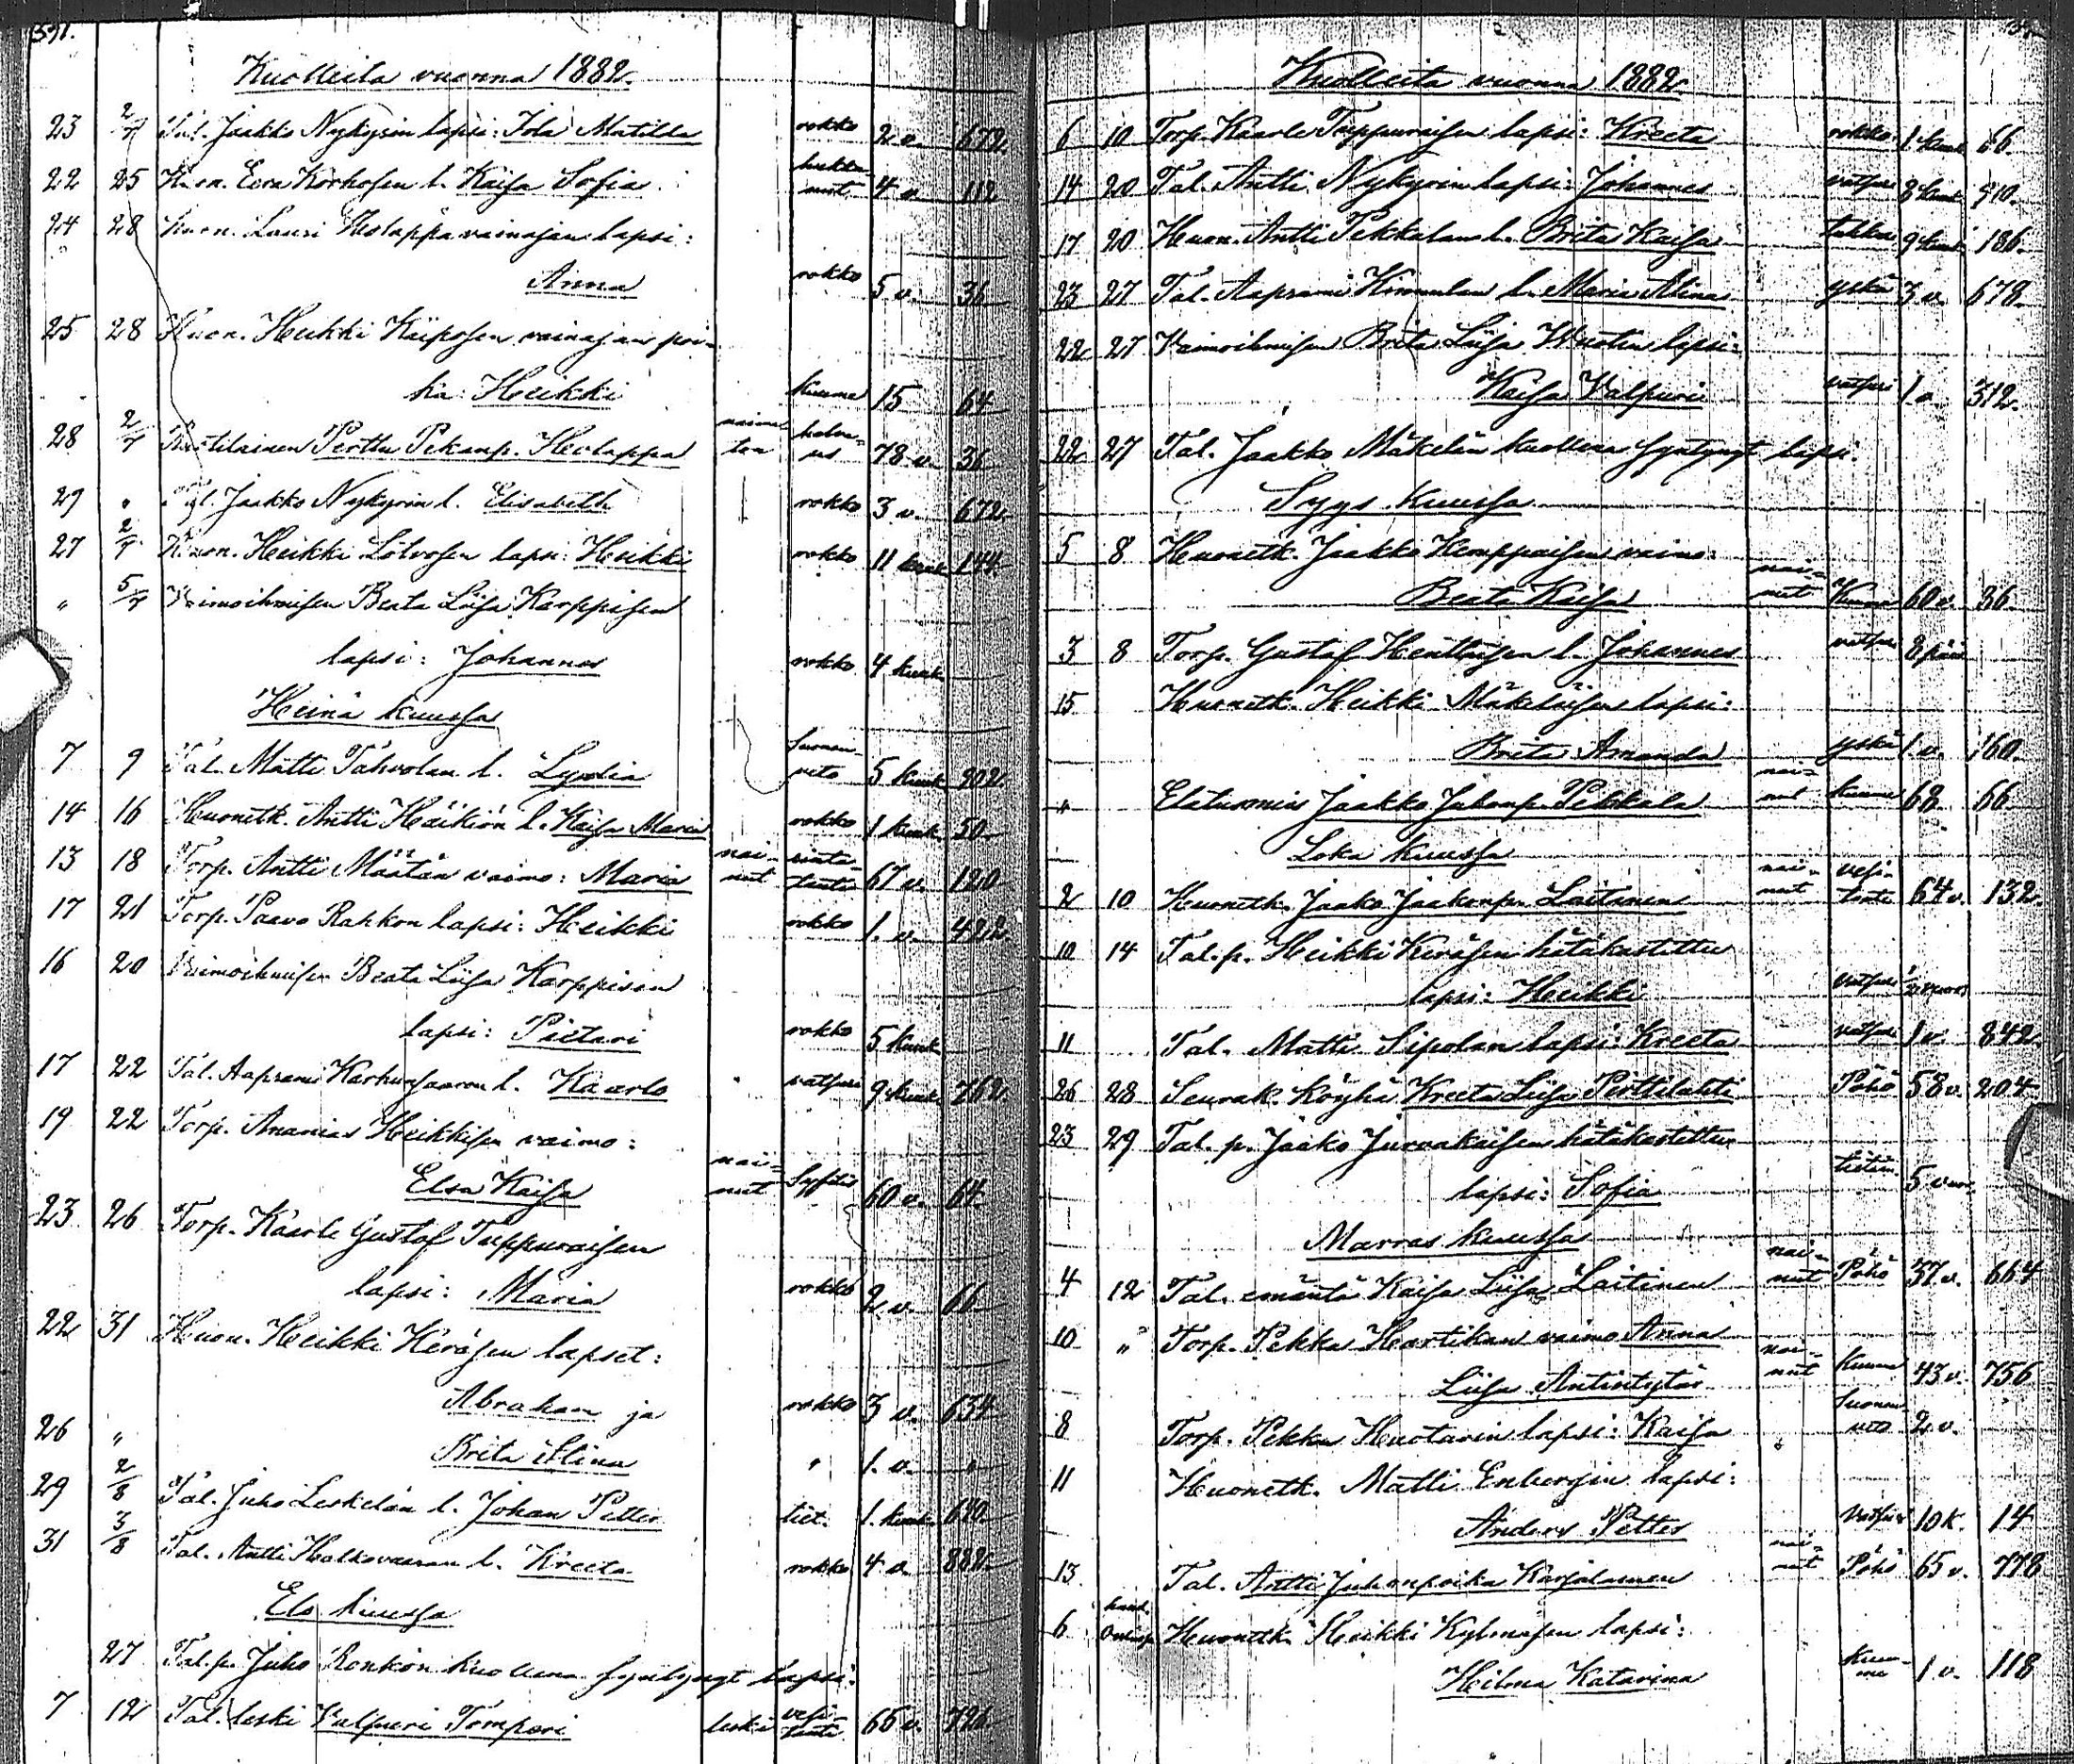 391.
Kuolleita vuonna 1882.
23 2/7 Tal. Jaakko Nykyrin lapsi: Ida Matilda rokko 2 v. 672
22 25 Huon. Eera Korhosen l. Kaisa Sofia hukkunut 4 v. 112
24 28 Huon. Lauri Holappa vainajan lapsi:
Anna rokko 5 v. 36
25 28 Huon. Heikki Käiposen vainajan poi-
ka: Heikki kuume 15 64
28 2/7 Perttu Pekanp. Holappa naima-ton 78 v. 36
29 " Tal. Jaakko Nykyrin l. Elisabeth rokko 3 v. 672
27 2/7 Huon. Heikki Lotvosen lapsi: Heikki rokko 11 kuuk 144
" 5/7 Vaimoihmisen Beata Liisa Karppisen
lapsi: Johannes rokko 4 kuuk
Heinä kuussa
7 9 Tal. Matti Tahvolan l. Lydia suonen-veto 5 kuuk 902
14 16 Huonetk. Antti Häikiön l. Kaisa Maria rokko 1 kuuk 50
13 18 Torp. Antti Määtän vaimo: Maria nai-nut rinta-tauti 67 v. 120
17 21 Torp. Paavo Rahkon lapsi: Heikki rokko 1. v. 422
16 20 Vaimoihmisen Beata Liisa Karppisen
lapsi: Pietari rokko 5 kuuk
17 22 Tal. Aaprami Karhunsaaren l. Kaarlo vatsuri 9 kuuk 762
19 22 Torp. Ananias Heikkisen vaimo:
Elsa Kaisa nai-nut 60 v. 64
23 26 Torp. Kaarle Gustaf Tuppuraisen
lapsi: Maria rokko 2 v. 66
22 31 Huon. Heikki Keräsen lapset:
Abraham ja rokko 3 v. 634
26 " Brita Stina " 1. v. "
29 2/8 Tal. Juho Leskelän l. Johan Petter tiet. 1. kuuk 690
31 3/8 Tal. Antti Halkovaaran l. Kreeta rokko 4 v. 882
Elo kuussa
27 Tal. p. Juho Ronkon kuolleena syntynyt lapsi:
7 12 Tal. leski Valpuri Tomperi leski vesi-tauti 66 v. 726
Kuolleita vuonna 1882
6 10 Torp. Kaarle Tuppuraisen lapsi: Kreeta rokko 1 kuuk 66.
14 20 Tal. Antti Nykyrin lapsi: Johannes vatsuri 8 kuuk 910.
17 20 Huon. Antti Pekkalan l. Brita Kaisa 9 kuuk 186.
23 27 Tal. Aaprami Kimmelan l. Maria Alina yskä 3 v. 678.
22 27 Vaimoihmisen Brita Liisa Huotin lapsi:
Kaisa Valpuri vatsuri 1 v. 312.
22 27 Tal. Jaakko Mäkelän kuolleena syntynyt lapsi.
Syys kuussa
5 8 Huonetk. Jaakko Kemppaisen vaimo:
Beata Kaisa nai-nut Kuume 60 v. 36
3 8 Torp. Gustaf Henttisen l. Johannes vatsuri 8 päiv
15 Huonetk. Heikki Mäkeläisen lapsi:
Brita Amanda yskä 1. v. 160.
" Elatusmies Jaakko Juhanp. Pekkala nai-nut kuume 68 66
Loka kuussa
2 10 Huonetk. Jaako Jaakonp. Laitinen nai-nut vesi-tauti 64 v. 132.
10 14 Tal. p. Heikki Keräsen hätäkastettu
lapsi: Heikki vatsuri
11 Tal. Matti Sipolan lapsi: Kreeta vatsuri 1 v. 842
26 28 Seurak. köyhä Kreeta Liisa Perttilahti Pöhö 58 v. 204
23 29 Tal. p. Jaako Jurvakaisen hätäkastettu
lapsi: Sofia 5 vuor.
Marras kuussa
4 12 Tal. emäntä Kaisa Liisa Laitinen nai-nut Pöhö 37 v. 664
10 " Torp. Pekka Hartikan vaimo Anna
Liisa Antintytär nai-nut Kuume 43 v. 756
8 Torp. Pekka Huotarin lapsi: Kaisa Suonenveto 2 v.
11 Huonetk. Matti Enbergin lapsi:
Anders Petter Vatsuri 10 k. 14
13 Tal. Antti Juhonpoika Karjalainen nai-nut Pöhö 65 v. 778
6 Huonetk. Heikki Kylmäsen lapsi:
Hilma Katarina kuu-me 1 v. 118